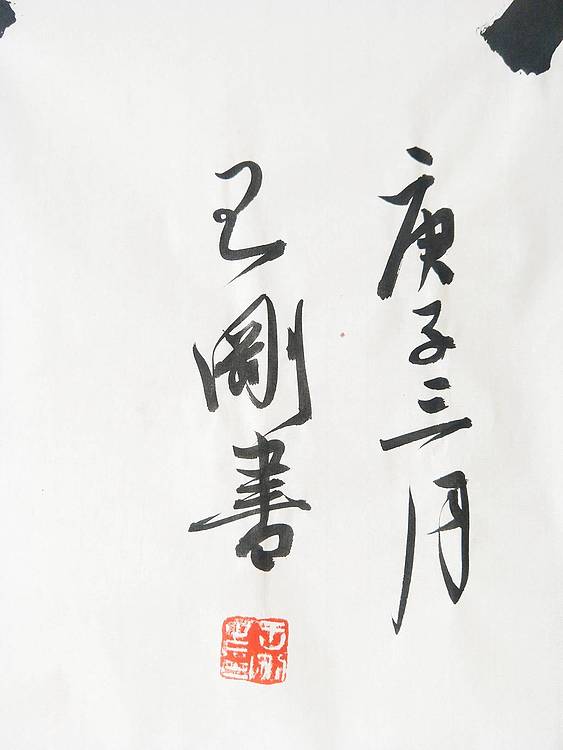 庚子三月
王剛書